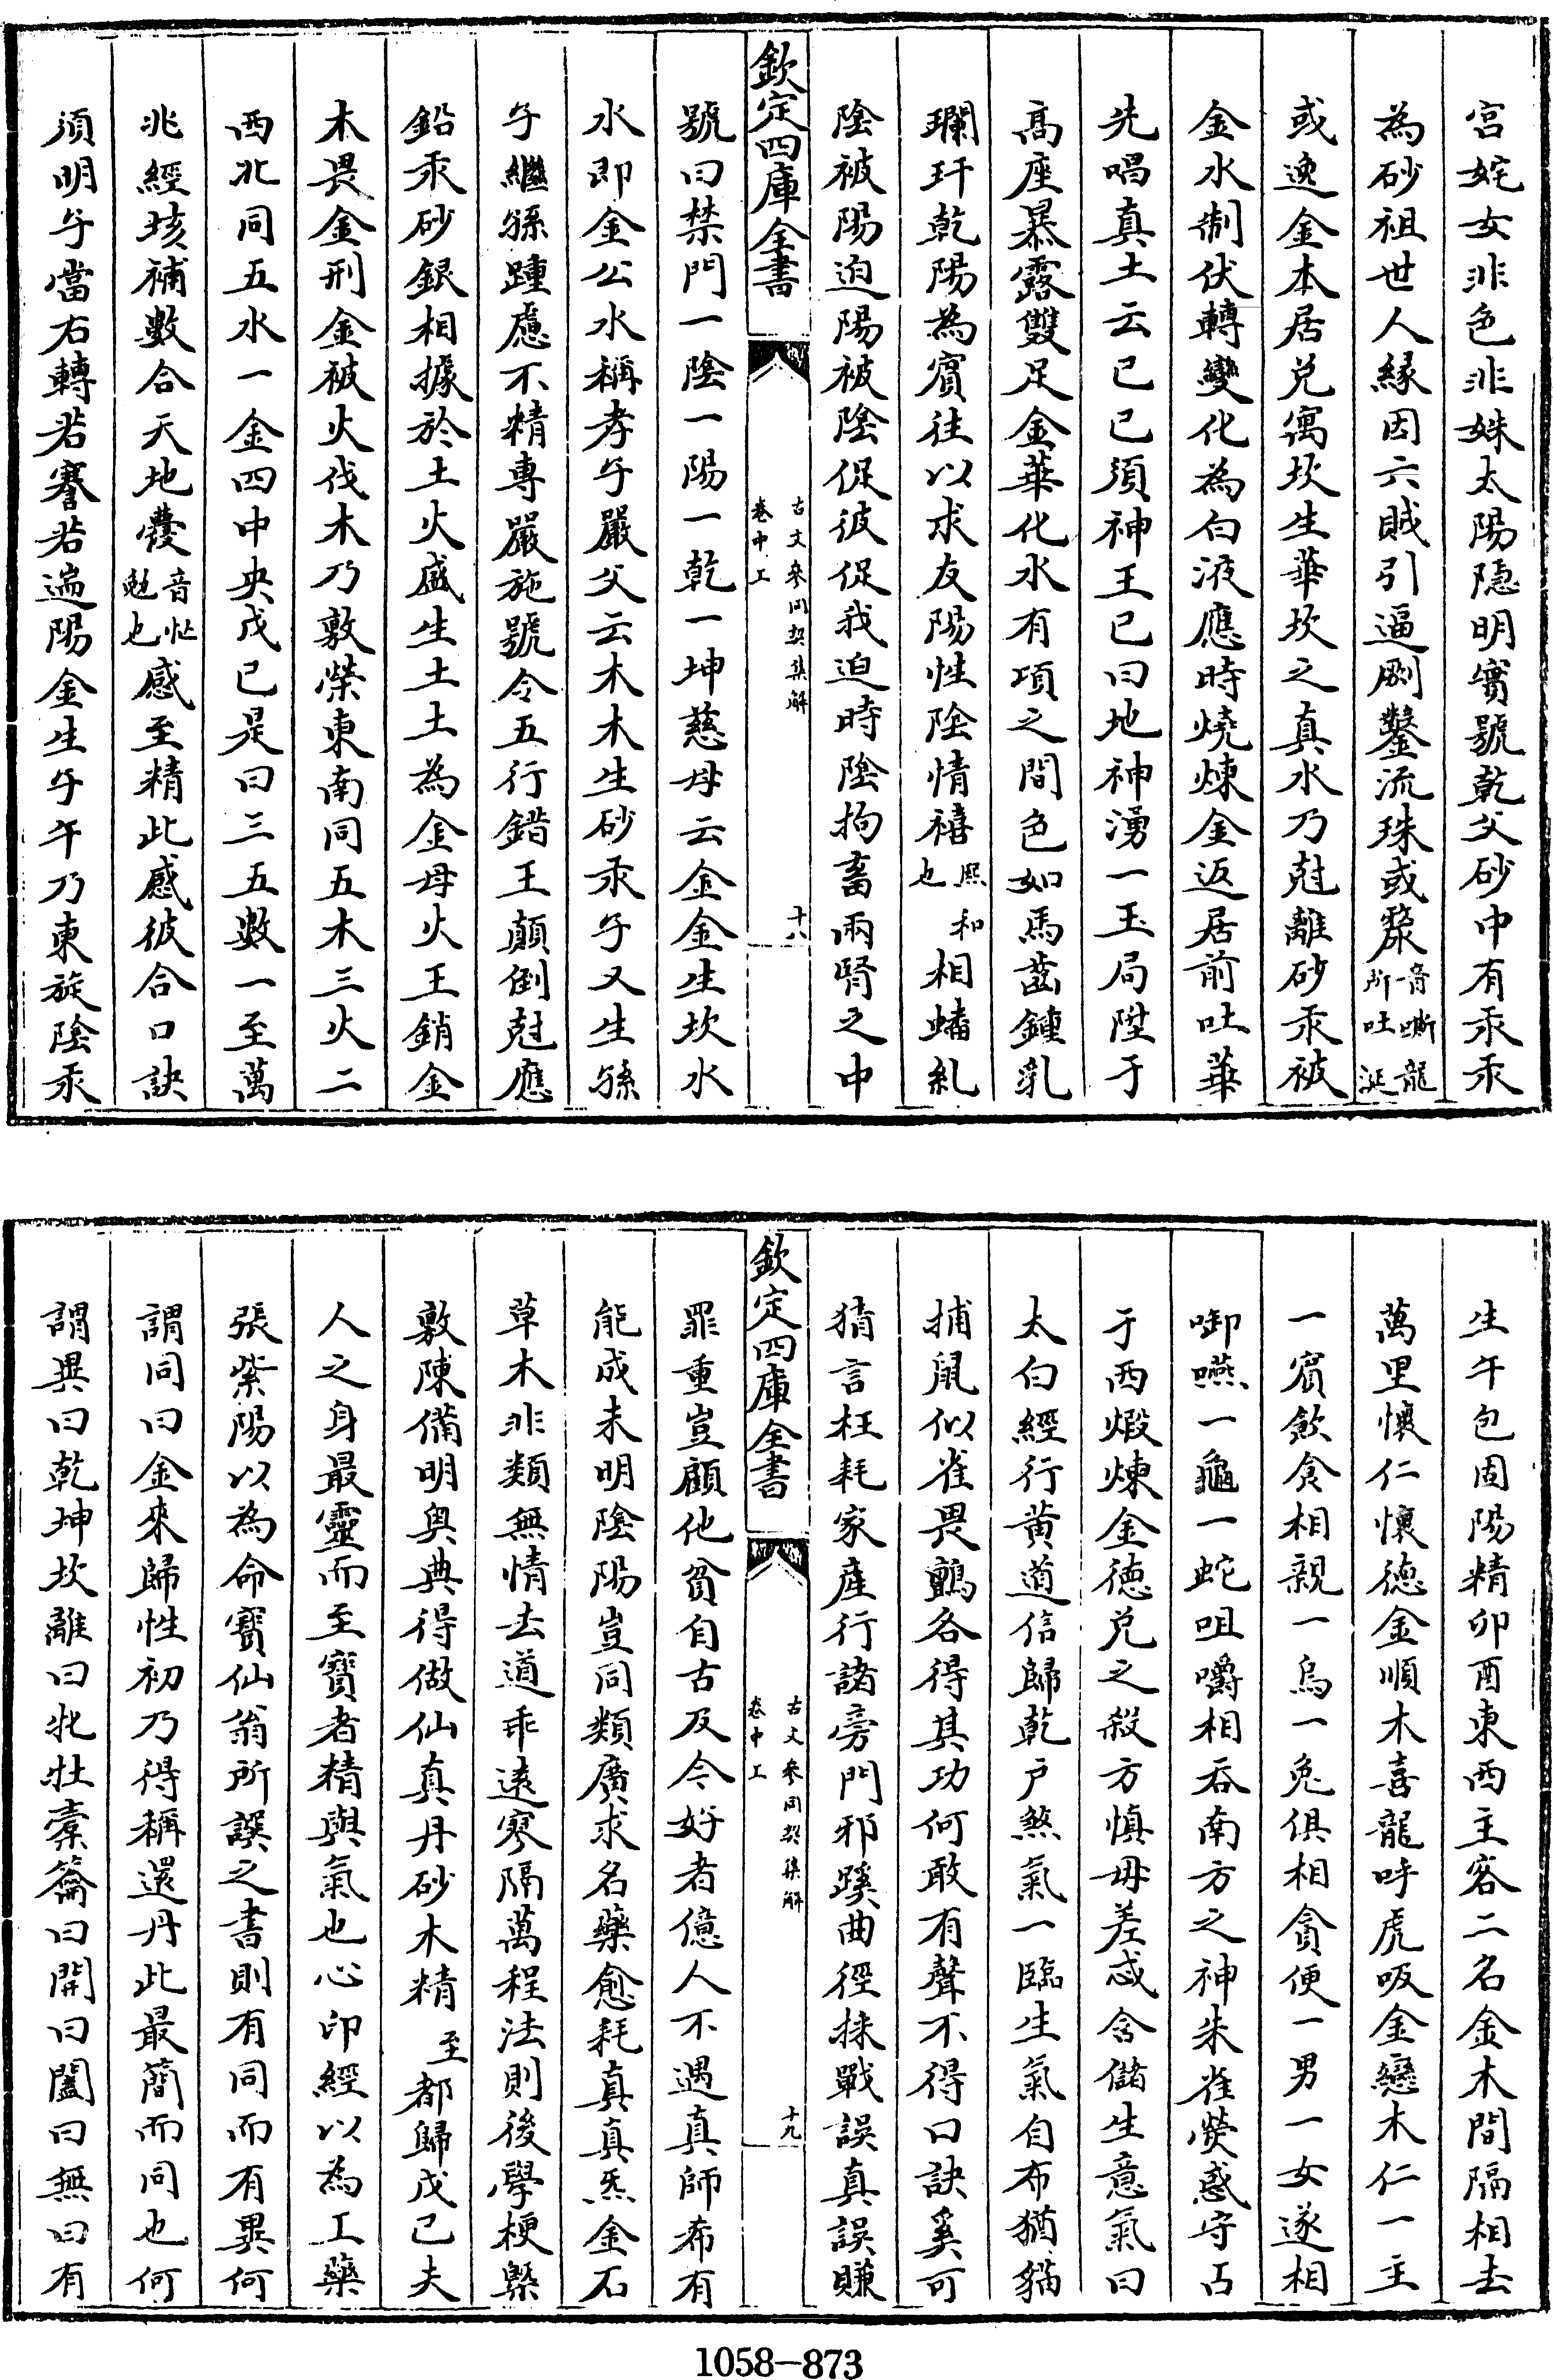 宫姹女非色非姝太陽隠明實號乾父砂中有汞汞
為砂祖世人縁因六賊引逼剛鑿流珠或漦音嘶龍所吐涎
或逸金本居兑寓坎生華坎之真水乃尅離砂汞被
金水制伏轉變化為白液應時燒煉金返居前吐華
先唱真土云已已須神王已曰地神湧一玉局陞于
髙座暴露雙足金華化水有項之間色如馬齒鍾乳
瓓玕乾陽為賓往以求友陽性陰情禧熙和也相蟠糺
陰被陽迫陽被陰促彼促我迫時陰拘畜兩腎之中
欽定四庫全書
古文參同契集解
卷中上
十八
號曰禁門一陰一陽一乾一坤慈母云金金生坎水
水即金公水稱孝子嚴父云木木生砂汞子又生孫
子繼孫踵慮不精專嚴施號令五行錯王顛倒尅應
鉛汞砂銀相據於土火盛生土土為金母火王銷金
木畏金刑金被火伐木乃敷榮東南同五木三火二
西北同五水一金四中央戊已是曰三五數一至萬
兆經垓補數合天地虁音忙勉也感至精此感彼合口訣
須明子當右轉若謇若遄陽金生子午乃東旋陰汞
生午包固陽精卯酉東西主客二名金木間隔相去
萬里懷仁懷德金順木喜龍呼虎吸金戀木仁一主
一賓飲食相親一烏一兔俱相貪便一男一女遂相
啣嚥一龜一蛇咀嚼相吞南方之神朱雀熒惑守占
于西煅煉金德兑之殺方慎毋差忒含儲生意氣曰
太白經行黄道信歸乾戸煞氣一臨生氣自布猶貓
捕鼠似雀畏鸇各得其功何敢有聲不得口訣奚可
猜言枉耗家産行諸旁門邪蹊曲徑採戰誤真誤賺
欽定四庫全書
古文參同契集解
卷中上
十九
罪重豈顧他貧自古及今好者億人不遇真師希有
能成未明陰陽豈同類廣求名藥愈耗真真炁金石
草木非類無情去道乖遠寥隔萬程法則後學梗槩
敷陳備明奥典得做仙真丹砂木精至都歸戊已夫
人之身最靈而至寳者精與氣也心印經以為工藥
張紫陽以為命寳仙翁所謨之書則有同而有異何
謂同曰金來歸性初乃得稱還丹此最簡而同也何
謂異曰乾坤坎離曰牝牡槖籥曰開曰闔曰無曰有
1058-873